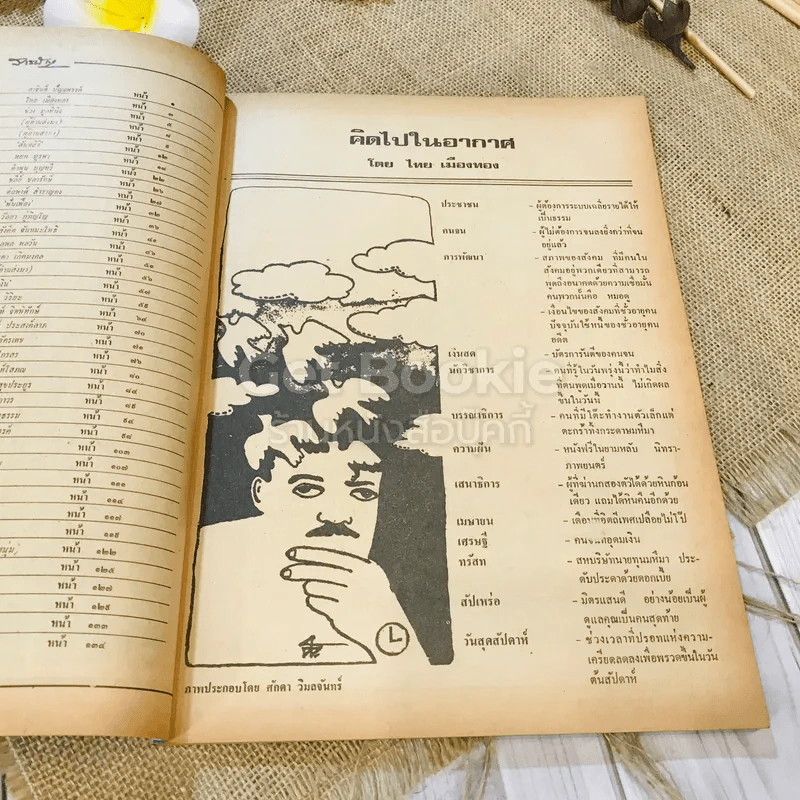 สารบัญ
อาจินต์ ปัญจพรรค์ หน้า ๑
ไทย เมืองทอง หน้า ๓
หน้า ๕
(ผู้อ่านส่งมา) หน้า ๘
(ผู้อ่านส่งมา) หน้า ๙
หน้า ๑๒
หน้า ๑๘
คำพูน บุญทวี หน้า ๒๒
หน้า ๒๖
หน้า ๒๗
หน้า ๓๒
หน้า ๓๖
หน้า ๔๑
หน้า ๔๖
หน้า ๕๑
หน้า ๕๖
หน้า ๕๗
หน้า ๕๙
หน้า ๖๔
หน้า ๗๐
หน้า ๗๑
หน้า ๗๖
หน้า ๘๑
หน้า ๘๕
หน้า ๘๙
หน้า ๙๔
หน้า ๙๘
หน้า ๑๐๓
หน้า ๑๐๗
หน้า ๑๑๑
หน้า ๑๑๔
หน้า ๑๑๗
หน้า ๑๑๙
หน้า ๑๒๒
หน้า ๑๒๕
หน้า ๑๒๗
หน้า ๑๒๙
หน้า ๑๓๓
หน้า ๑๓๔
คิดไปในอากาศ
โดย ไทย เมืองทอง
ประชาชน – ผู้ต้องการระบบเฉลี่ยรายได้ให้
เป็นธรรม
คนจน – ผู้ไม่ต้องการจนลงยิ่งกว่าที่จน
อยู่แล้ว
การพัฒนา – สภาพของสังคม ที่มีคนใน
สังคมอยู่พวกเดียวที่สามารถ
พูดถึงอนาคตด้วยความเชื่อมั่น
คนพวกนั้นคือ หมอดู
– เงื่อนไขของสังคมที่ชั่วอายุคน
ปัจจุบันใช้หนี้ของชั่วอายุคน
อดีต
เงินสด – บัตรการันตีของคนจน
นักวิชาการ – คนที่รู้ในวันพรุ่งนี้ว่าทำไมสิ่ง
ที่ตนพูดเมื่อวานนี้ ไม่เกิดผล
ขึ้นในวันนี้
บรรณาธิการ – คนที่มีโต๊ะทำงานตัวเล็กแต่
ตะกร้าทิ้งกระดาษมหึมา
ความฝัน – หนังฟรีในยามหลับ นิทรา-
ภาพยนตร์
เสนาธิการ – ผู้ที่ฆ่านกสองตัวได้ด้วยหินก้อน
เดียว แถมได้หินคืนอีกด้วย
เมษายน – เดือนที่อิตถีเพศเปลือยไม่โป๊
เศรษฐี – คนจนที่อุดมเงิน
ทรัสท – สหบริษัทนายทุนมหึมา ประ-
ดับประดาด้วยดอกเบี้ย
สัปเหร่อ – มิตรแสนดี อย่างน้อยเป็นผู้
ดูแลคุณเป็นคนสุดท้าย
วันสุดสัปดาห์ – ช่วงเวลาที่ปรอทแห่งความ-
เครียดลดลงเพื่อพรวดขึ้นในวัน
ต้นสัปดาห์
ภาพประกอบโดย ศักดา วิมลจันทร์
Get Bookie
ร้านหนังสือบุคกี้